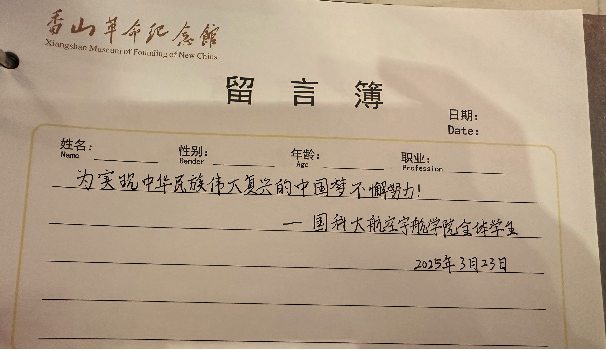 香山革命纪念館
Xiangshan Museum of Founding of New China
留言簿
日期：
Date:
姓名： 性别： 年龄： 职业：
Name Gender Age Profession
为实现中华民族伟大复兴的中国梦不懈努力！
—国科大航空宇航学院全体学生
2025年3月23日